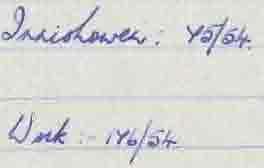 Inniohowen: 45/54.
Work :- 146/54